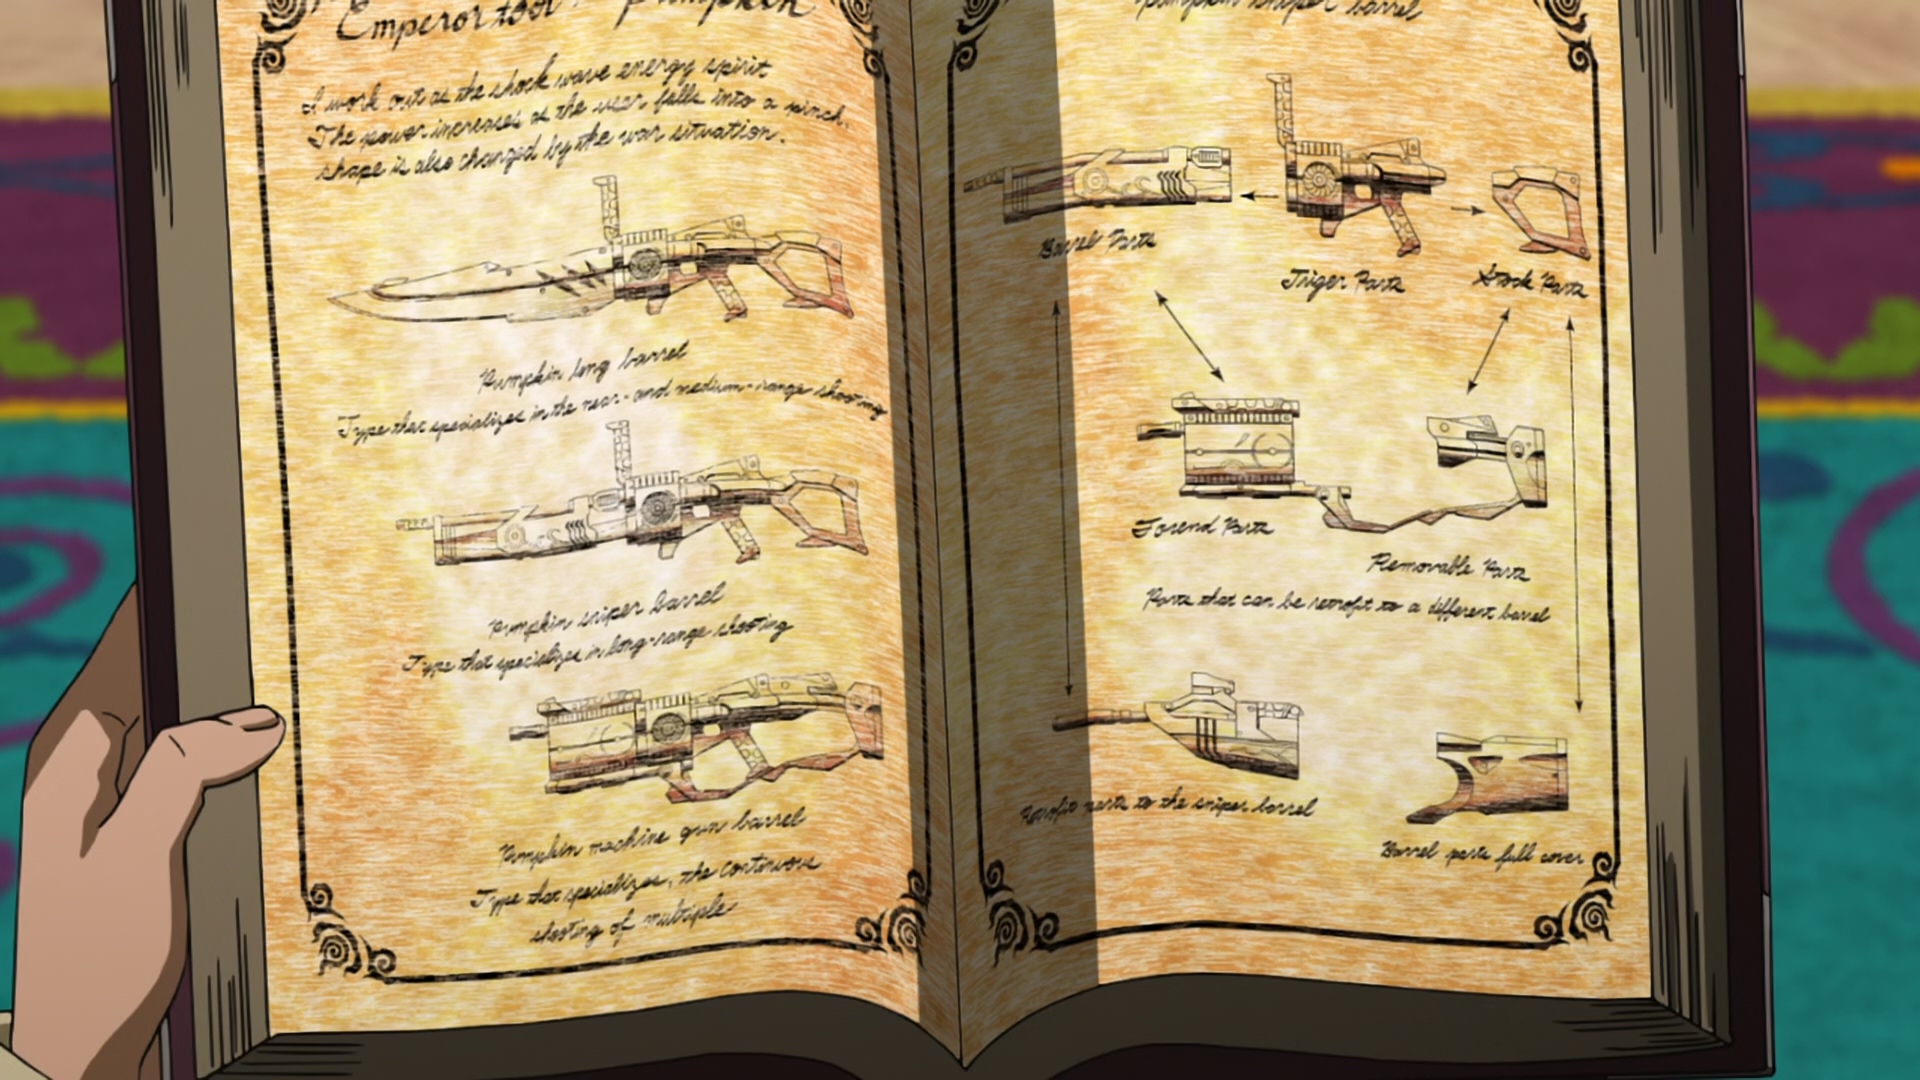 Emperor tool Pumpkin
I work out as the shock wave energy spirit
The power increases as the user falls into a pinch.
shape is also changed by the war situation.
Pumpkin long barrel
Type that specializes in the near- and medium-range shooting
Pumpkin sniper barrel
Type that specializes in long-range shooting
Pumpkin machine gun barrel
Type that specializes, the continuous
shooting of multiple
Pumpkin sniper barrel
Barrel Parts
Triger Parts
Stock Parts
Forend Parts
Removable Parts
Parts that can be retrofit to a different barrel
Retrofit parts to the sniper barrel
Barrel parts full cover